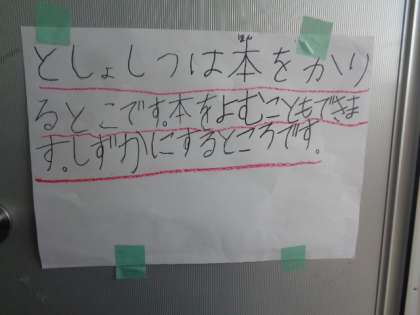 としょしつは本をかり
るとこです。本をよむこともできま
す。しずかにするところです。